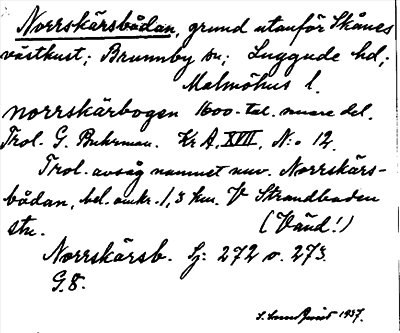 Norrskärsbådan, grund utanför Skånes
västkust; Brunnby sn; Luggude hd;
Malmöhus l.
norrskärbogen 1600-tal. senare del.
Trol. G. Buhrman. Kr A, XVII, N:o 12.
Trol. avsåg namnet nuv. Norrskärs-
bådan, bel. omkr. 1,3 km. V Strandbaden
stn. (Vänd!)
Norrskärsb. Sj: 272 o. 273.
G.8.
1937.